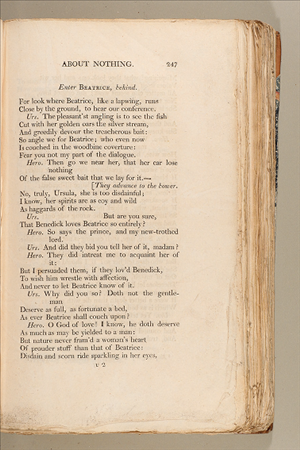 ABOUT NOTHING. 247
Enter BEATRICE, behind.
For look where Beatrice, like a lapwing, runs
Close by the ground, to hear our conference.
Urs. The pleasant'st angling is to see the fish
Cut with her golden oars the silver stream,
And greedily devour the treacherous bait:
So angle we for Beatrice; who even now
Is couched in the woodbine coverture:
Fear you not my part of the dialogue.
Hero. Then go we near her, that her ear lose
nothing
Of the false sweet bait that we lay for it.—
[They advance to the bower.
No, truly, Ursula, she is too disdainful;
I know, her spirits are as coy and wild
As haggards of the rock.
Urs. But are you sure,
That Benedick loves Beatrice so entirely?
Hero. So says the prince, and my new-trothed
lord.
Urs. And did they bid you tell her of it, madam?
Hero. They did intreat me to acquaint her of
it:
But I persuaded them, if they lov'd Benedick,
To wish him wrestle with affection,
And never to let Beatrice know of it.
Urs. Why did you so? Doth not the gentle-
man
Deserve as full, as fortunate a bed,
As ever Beatrice shall couch upon?
Hero. O God of love! I know, he doth deserve
As much as may be yielded to a man:
But nature never fram'd a woman's heart
Of prouder stuff than that of Beatrice:
Disdain and scorn ride sparkling in her eyes,
v 2